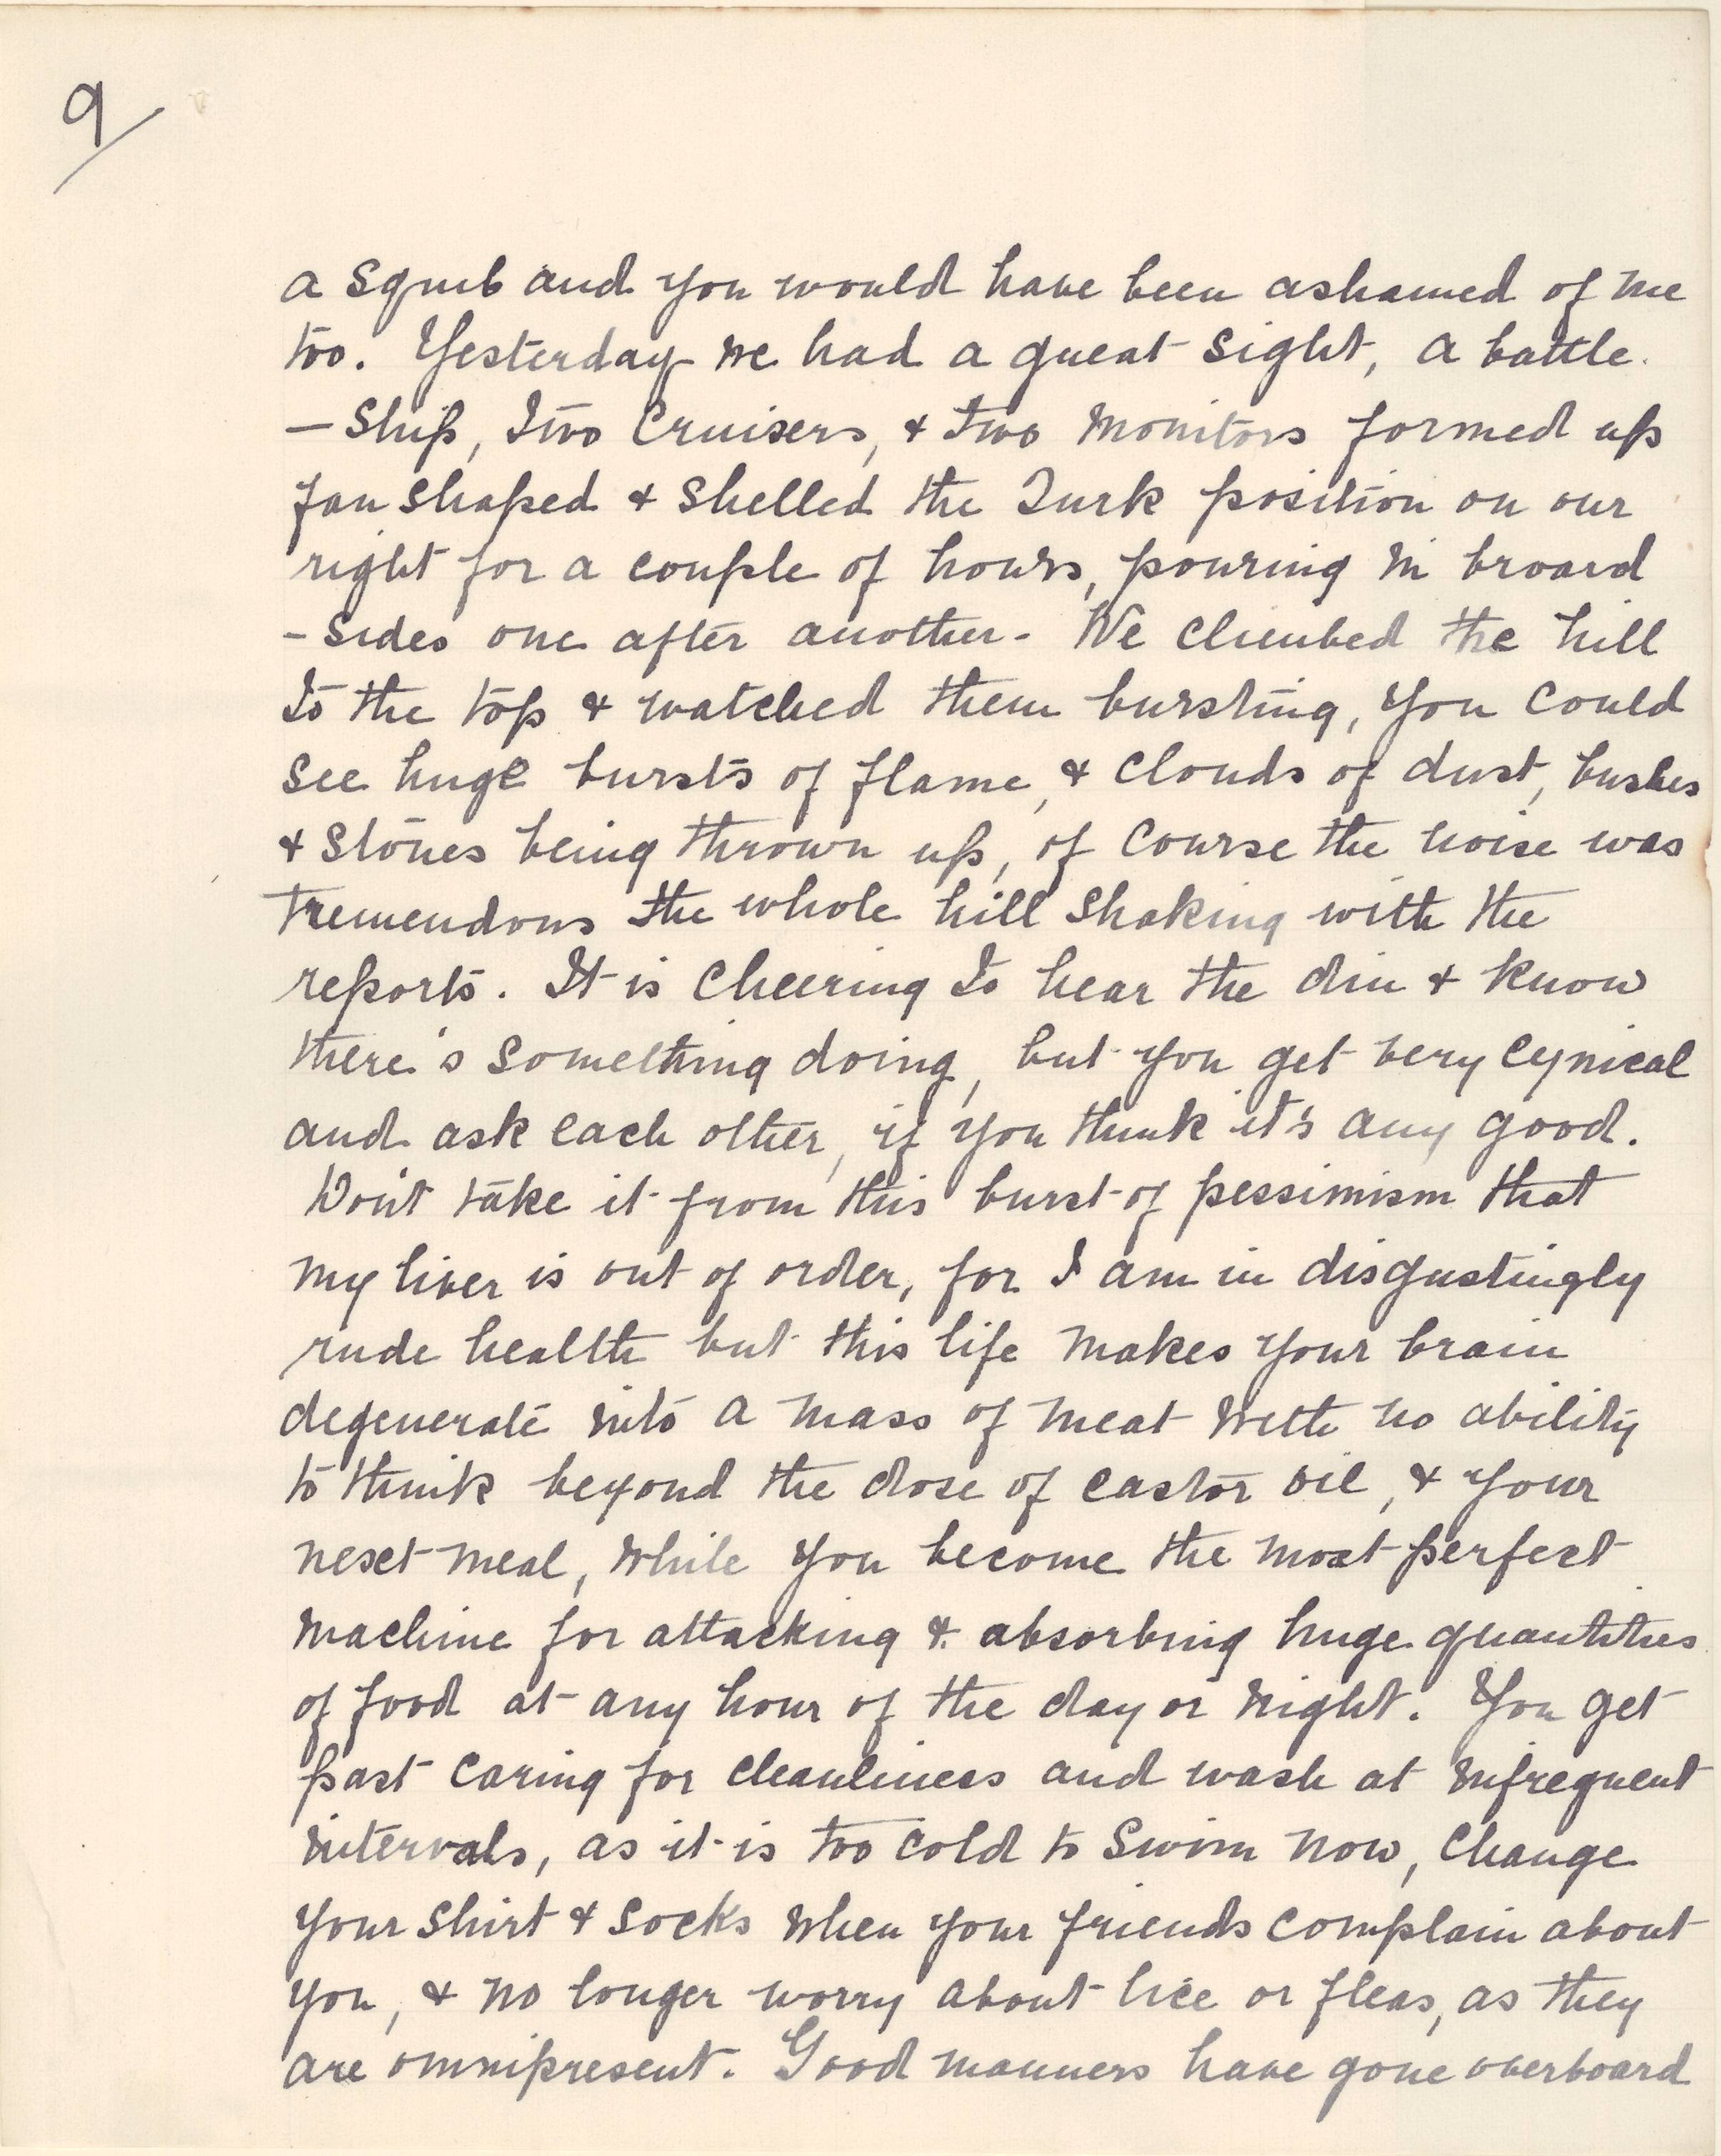 9/
a squib and you would have been ashamed of me
too. Yesterday we had a great sight, a battle.
—Ship, Two Cruisers, & two monitors formed up
fan shaped & shelled the Turk position on our
right for a couple of hours, pouring in broard
-sides one after another- We climbed the hill
to the top & watched them bursting, you could
see huge bursts of flame, & clouds of dust, bushes
& stones being thrown up, of course the noise was
tremendous the whole hill shaking with the
reports. It is cheering to hear the din & know
there's something doing, but you get very cynical
and ask each other, if you think it's any good.
Don't take it from this burst of pessimism that
my liver is out of order, for I am in disgustingly
rude health but this life makes your brain
degenerate into a mass of meat with no ability
to think beyond the dose of castor oil, & your
next meal, while you become the most perfect
machine for attacking & absorbing huge quantities
of food at any hour of the day or night. You get
past caring for cleanliness and wash at infrequent
intervals, as it is too cold to swim now, change
your shirt & socks when your friends complain about
you, & no longer worry about lice or fleas, as they
are omnipresent. Good manners have gone overboard